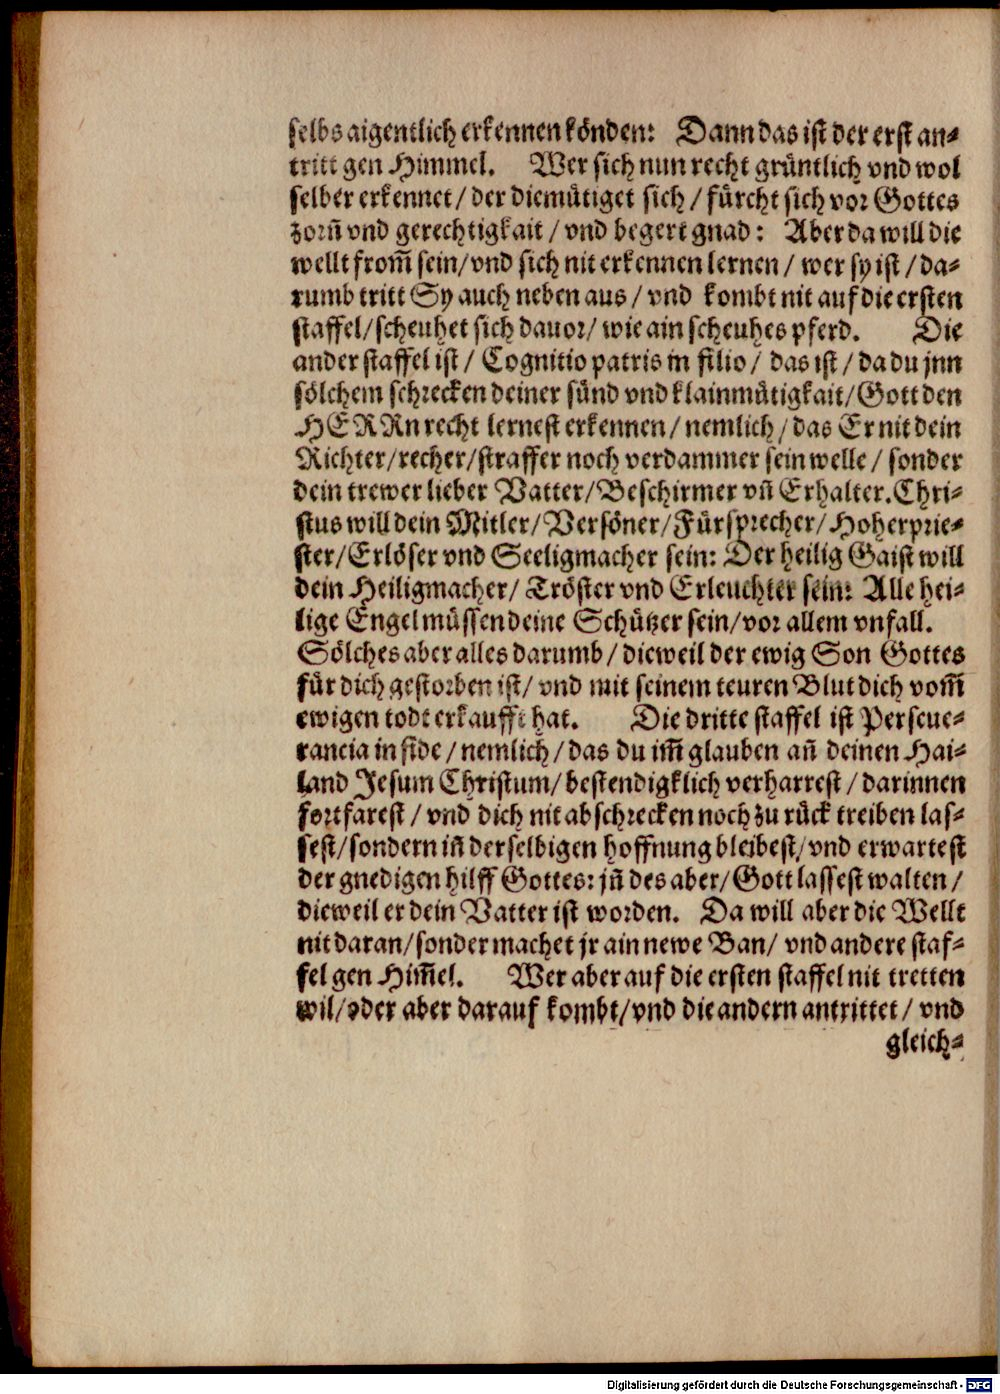 selbs aigentlich erkennen könden: Dann das ist der erst an⸗
tritt gen Himmel. Wer sich nun recht gründtlich vnd wol
selber erkennet / der diemütiget sich / fürcht sich vor Gottes
zorn̄ vnd gerechtigkait / vnd begert gnad: Aber da will die
wellt from̄ sein / vnd sich nit erkennen lernen / wer sy ist / da⸗
rumb tritt Sy auch neben aus / vnd kombt nit auf die ersten
staffel / scheuhet sich dauor / wie ain scheuhes pferd. Die
ander staffel ist / Cognitio patris in filio / das ist / da du jnn
sölchem schrecken deiner sünd vnd klainmütigkait / Gott den
HERRn recht lernest erkennen / nemlich / das Er nit dein
Richter / recher / straffer noch verdammer sein welle / sonder
dein trewer lieber Vatter / Beschirmer vn̄ Erhalter. Chri⸗
stus will dein Mitler / Versöner / Fürsprecher / Hoherprie⸗
ster / Erlöser vnd Seeligmacher sein: Der heilig Gaist will
dein Heiligmacher / Tröster vnd Erleuchter sein: Alle hei⸗
lige Engel müssen deine Schützer sein / vor allem vnfall.
Sölches aber alles darumb / dieweil der ewig Son Gottes
für dich gestorben ist / vnd mit seinem teuren Blut dich vom̄
ewigen todt erkaufft hat. Die dritte staffel ist Perseue⸗
rancia in fide / nemlich / das du im̄ glauben an̄ deinen Hai⸗
land Jesum Christum / bestendigklich verharrest / darinnen
fortfarest / vnd dich nit abschrecken noch zu rück treiben las⸗
sest / sondern in̄ derselbigen hoffnung bleibest / vnd erwartest
der gnedigen hilff Gottes: jn̄ des aber / Gott lassest walten /
dieweil er dein Vatter ist worden. Da will aber die Wellt
nit daran / sonder machet jr ain newe Ban / vnd andere staf⸗
fel gen Him̄el. Wer aber auf die ersten staffel nit tretten
wil / oder aber darauf kombt / vnd die andern antrittet / vnd
gleich⸗
Digitalisierung gefördert durch die Deutsche Forschungsgemeinschaft - DFG